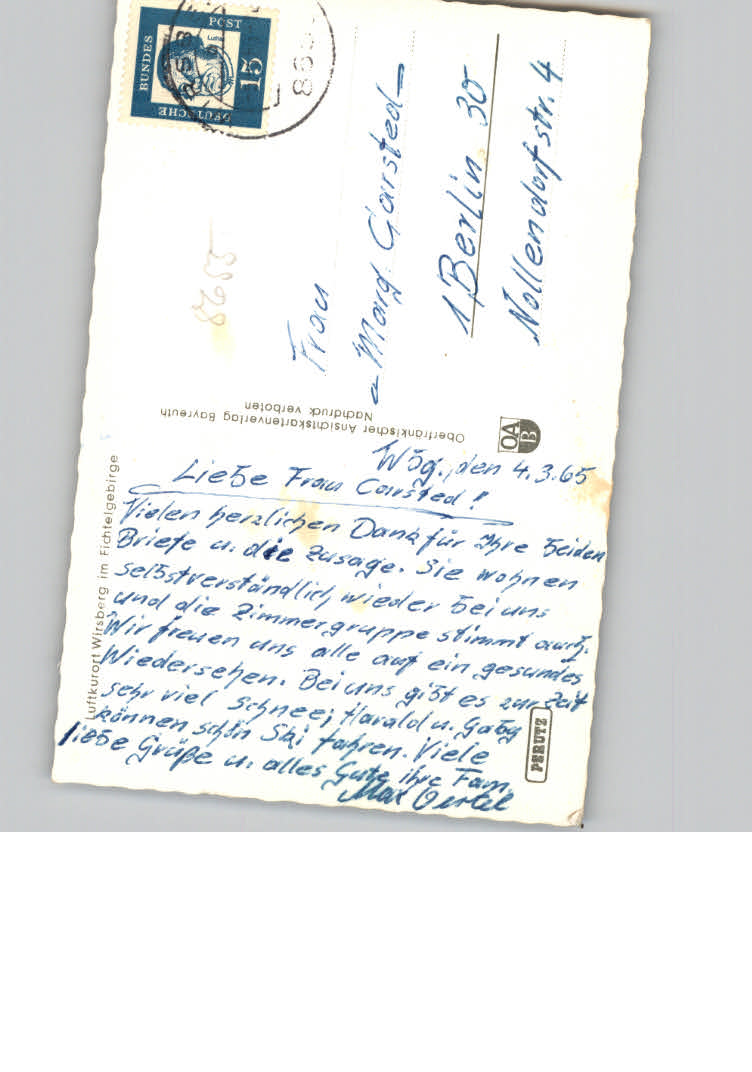 Luftkurort Wirsberg im Fichtelgebirge
Wbg., den 4.3.65
Liebe Frau Carsted!
Vielen herzlichen Dank für Ihre beiden
Briefe u. die Zusage. Sie wohnen
selbstverständlich wieder bei uns
und die Zimmergruppe stimmt auch.
Wir freuen uns alle auf ein gesundes
Wiedersehen. Bei uns gibt es zur Zeit
sehr viel Schnee; Harald u. Gaby
können schön Ski fahren. Viele
liebe Grüße u. alles Gute ihre Fam.
Max Oertel
PERUTZ
OA
B
Oberfränkischer Ansichtskartenverlag Bayreuth
Nachdruck verboten
DEUTSCHE
BUNDES
POST
Luther
15
8655
Frau
Marg. Carsted
1 Berlin 30
Nollendorfstr. 4